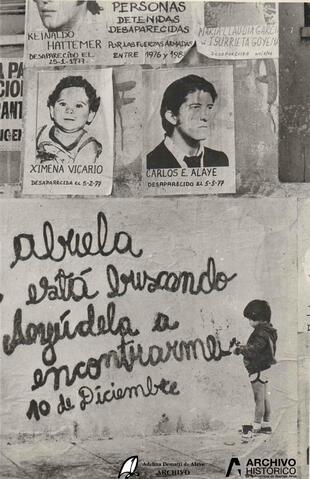 PERSONAS
DETENIDAS
DESAPARECIDAS
POR LAS FUERZAS ARMADAS
ENTRE 1976 y 198
REINALDO
HATTEMER
DESAPARECIDO EL
25-1-1977
MARIA CLAUDIA GARCIA
IRURETA GOYENA
XIMENA VICARIO
DESAPARECIDA EL 5-2-77
CARLOS E. ALAYE
DESAPARECIDO EL 5-5-77
abuela
está buscando
Ayúdela a
encontrarme
10 de Diciembre
Adelina Dematti de Alaye
ARCHIVO
ARCHIVO
HISTÓRICO